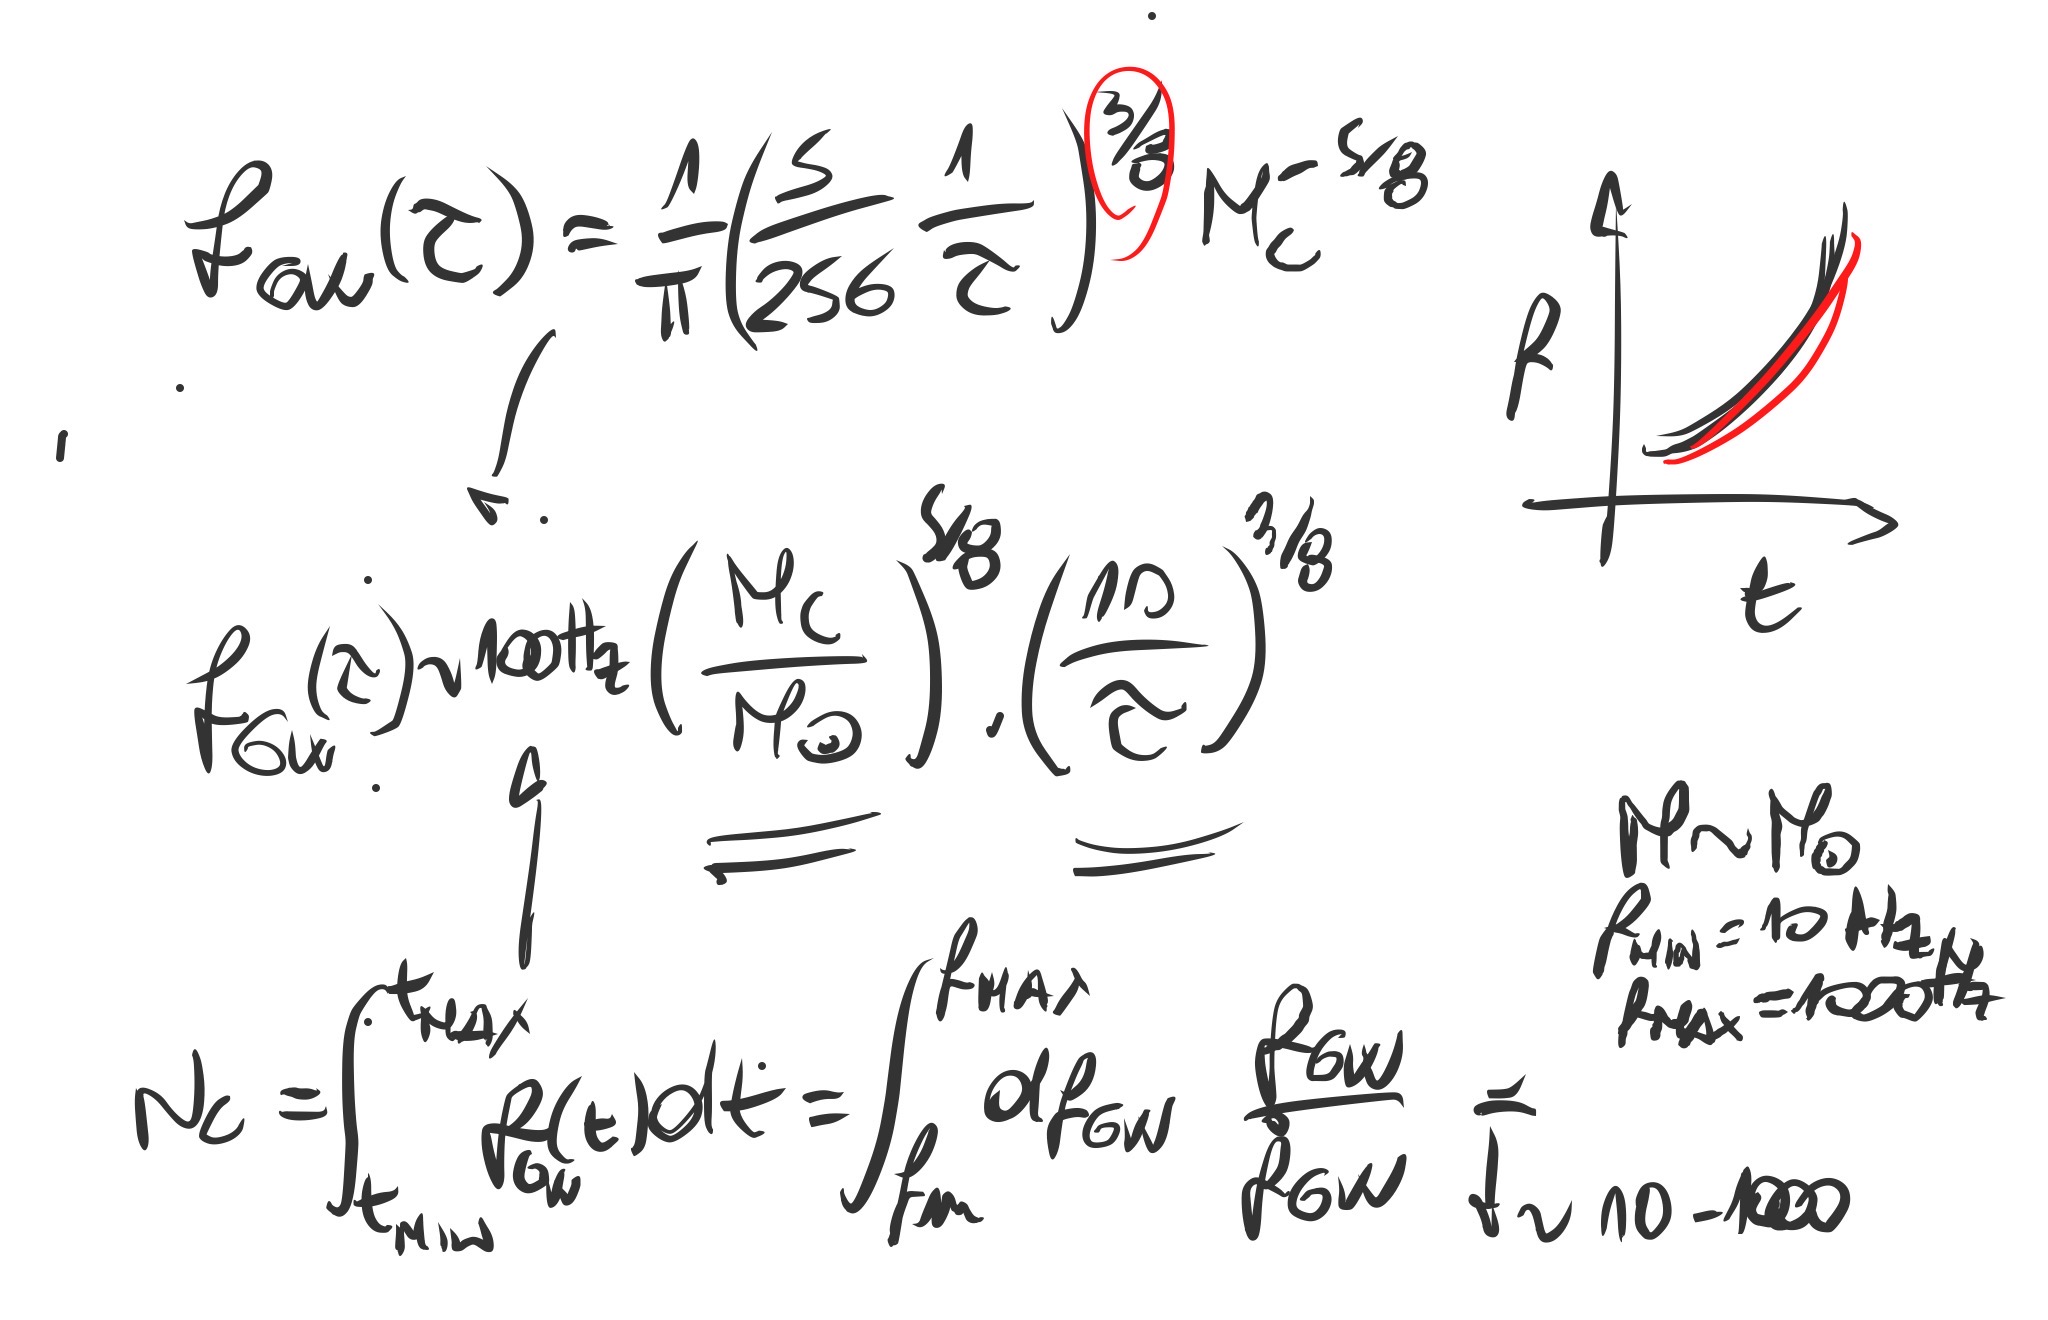 f_GW(τ) = 1/π (5/256 1/τ)^3/8 M_C^-5/8
f
t
f_GW(τ) ~ 100Hz (M_C/M_⊙)^5/8 · (10/τ)^3/8
M ~ M_⊙
f_MIN = 10 Hz
f_MAX = 1000Hz
N_C = ∫_{t_MIN}^{t_MAX} f_GW(t)dt = ∫_{f_m}^{f_MAX} df_GW f_GW/ḟ_GW =
~ 10 - 1000